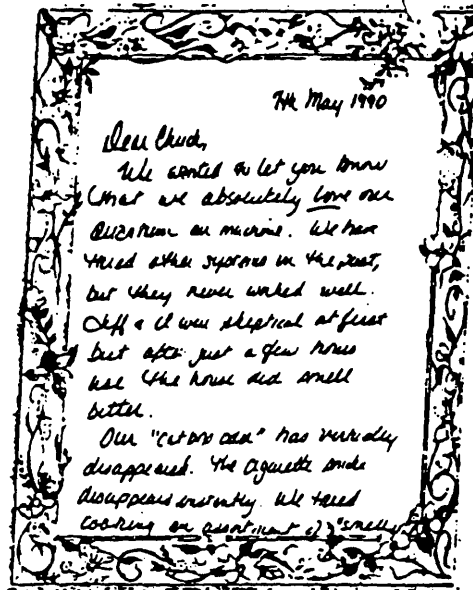 7th May 1990
Dear Chuck,
We wanted to let you know
that we absolutely love our
machine. We have
tried other systems in the past,
but they never worked well.
Jeff & I were skeptical at first
but after just a few hours
use the house did smell
better.
Our " odor" has virtually
disappeared. The cigarette smoke
disappears instantly. We tried
cooking an assortment of "smelly